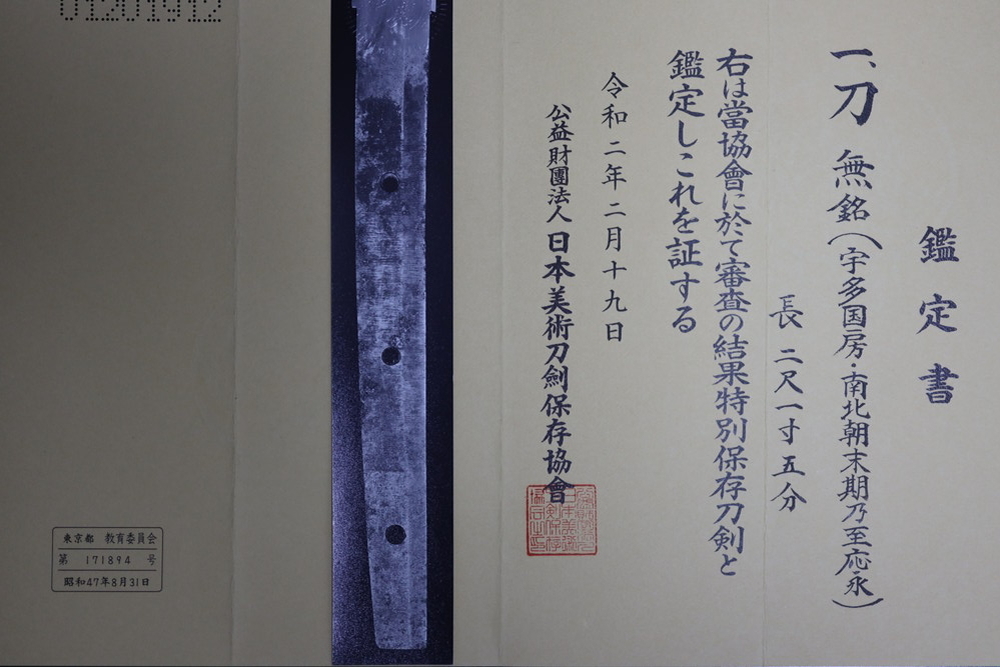 鑑定書
一、刀 無銘(宇多国房・南北朝末期乃至応永)
長 二尺一寸五分
右は當協會に於て審査の結果特別保存刀剣と
鑑定しこれを証する
令和二年二月十九日
公益財團法人 日本美術刀劍保存協會
東京都 教育委員会
第 171894 号
昭和47年8月31日